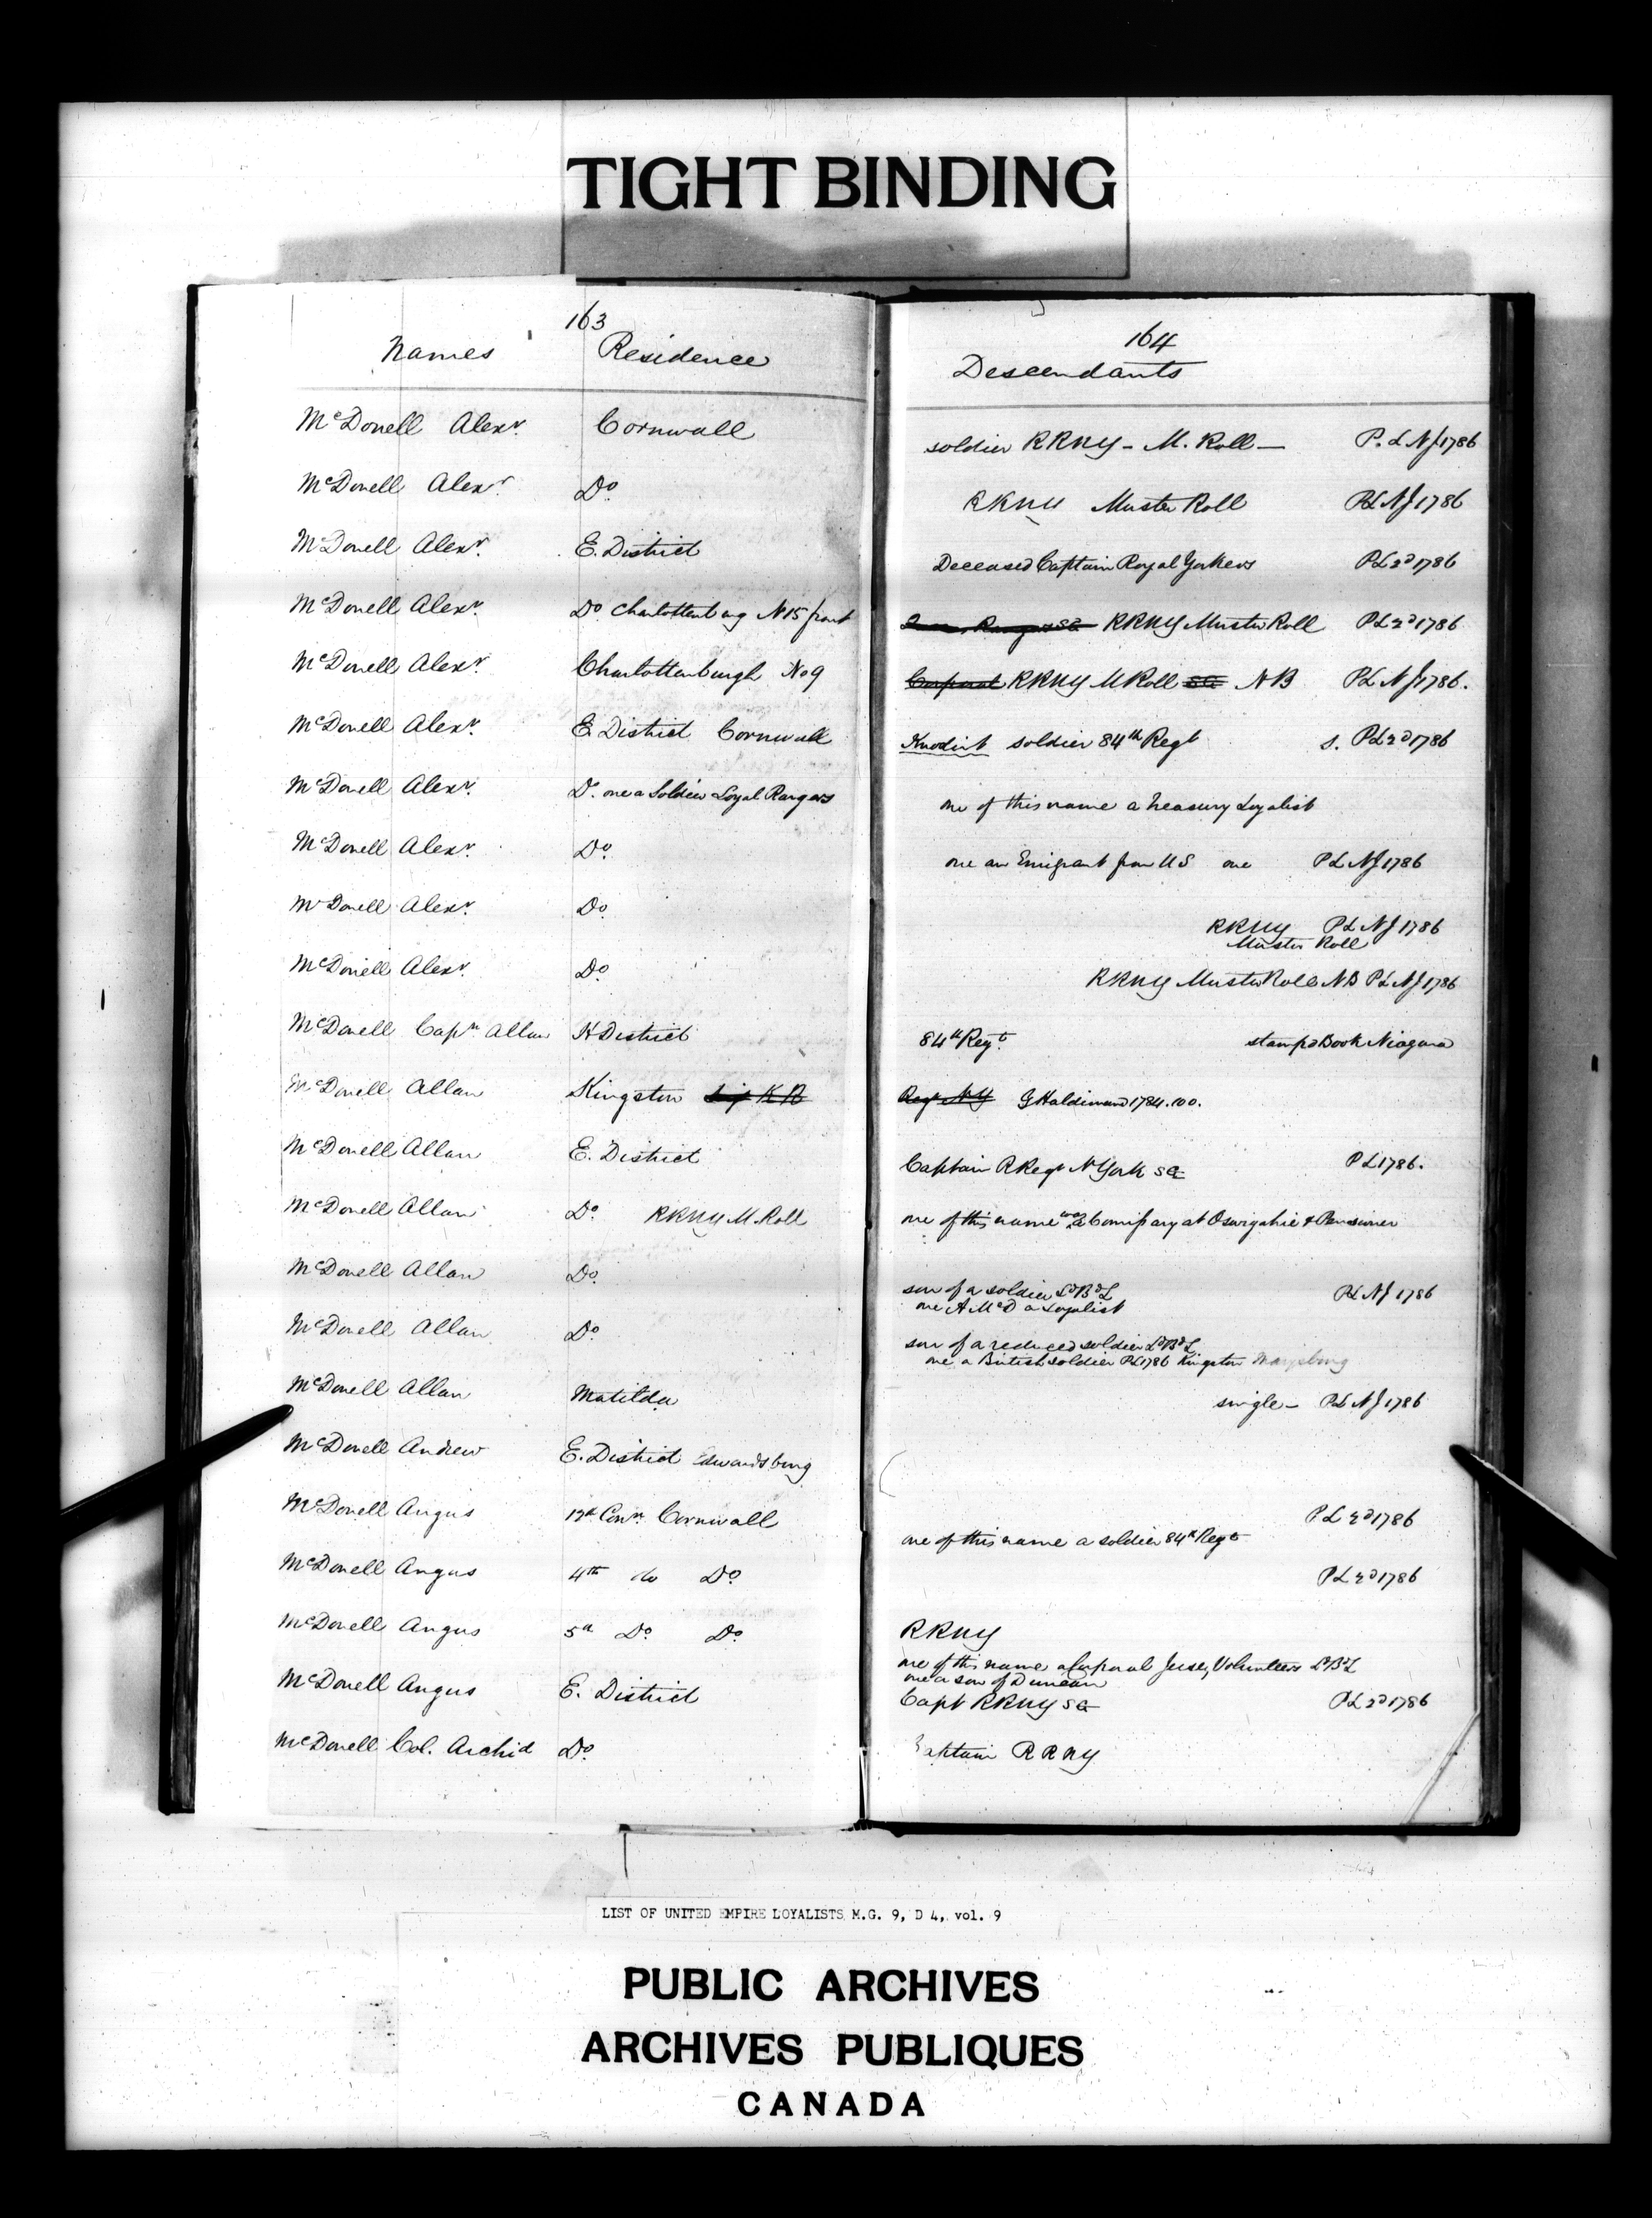 TIGHT BINDING
163
Names Residence
McDonell Alexr. Cornwall
McDonell Alexr. Do.
McDonell Alexr. E. District
McDonell Alexr. Do Charlottenburg N15 front
McDonell Alexr. Charlottenburgh No 9
McDonell Alexr. E. District Cornwall
McDonell Alexr. Do. one a Soldier Loyal Rangers
McDonell Alexr. Do.
McDonell Alexr. Do.
McDonell Alexr. Do.
McDonell Capn Allan H District
McDonell Allan Kingston K R
McDonell Allan E. District
McDonell Allan Do. RRNY M. Roll
McDonell Allan Do.
McDonell Allan Do.
McDonell Allan Matilda
McDonell Andrew E. District Edwardsburg
McDonell Angus 12th Conn. Cornwall
McDonell Angus 4th do Do.
McDonell Angus 5th Do. Do.
McDonell Angus E. District
McDonell Col. Archid Do.
164
Descendants
soldier RRNY - M. Roll — P. L NJ 1786
RRNY Muster Roll PL NJ 1786
Deceased Captain Royal Yorkers PL 2d 1786
Rangers SG RRNY Muster Roll PL 2d 1786
Corporal RRNY M Roll SG NB PL NJ 1786.
soldier 84th Regt s. PL 2d 1786
one of this name a Treasury Loyalist
one an Emigrant from US one PL NJ 1786
RRNY PL NJ 1786
Muster Roll
RRNY Muster Roll NB PL NJ 1786
84th Regt. stamped Book Niagara
Regt NY G Haldimand 1784.100.
Captain R Regt N York SG PL 1786.
one of this name was a Comissary at Oswigahie & Pensioner
son of a soldier LdBdL PL NJ 1786
one A McD a Loyalist
son of a reduced soldier LdBdL
one a British soldier PL 1786 Kingston Marysburg
single - PL NJ 1786
PL 2d 1786
one of this name a soldier 84th Regt
PL 2d 1786
RRNY
one of this name a Corporal Jersey Volunteers LdBdL
one a son of Duncan
Capt RRNY SG PL 2d 1786
Captain RRNY
LIST OF UNITED EMPIRE LOYALISTS M.G. 9, D 4, vol. 9
PUBLIC ARCHIVES
ARCHIVES PUBLIQUES
CANADA